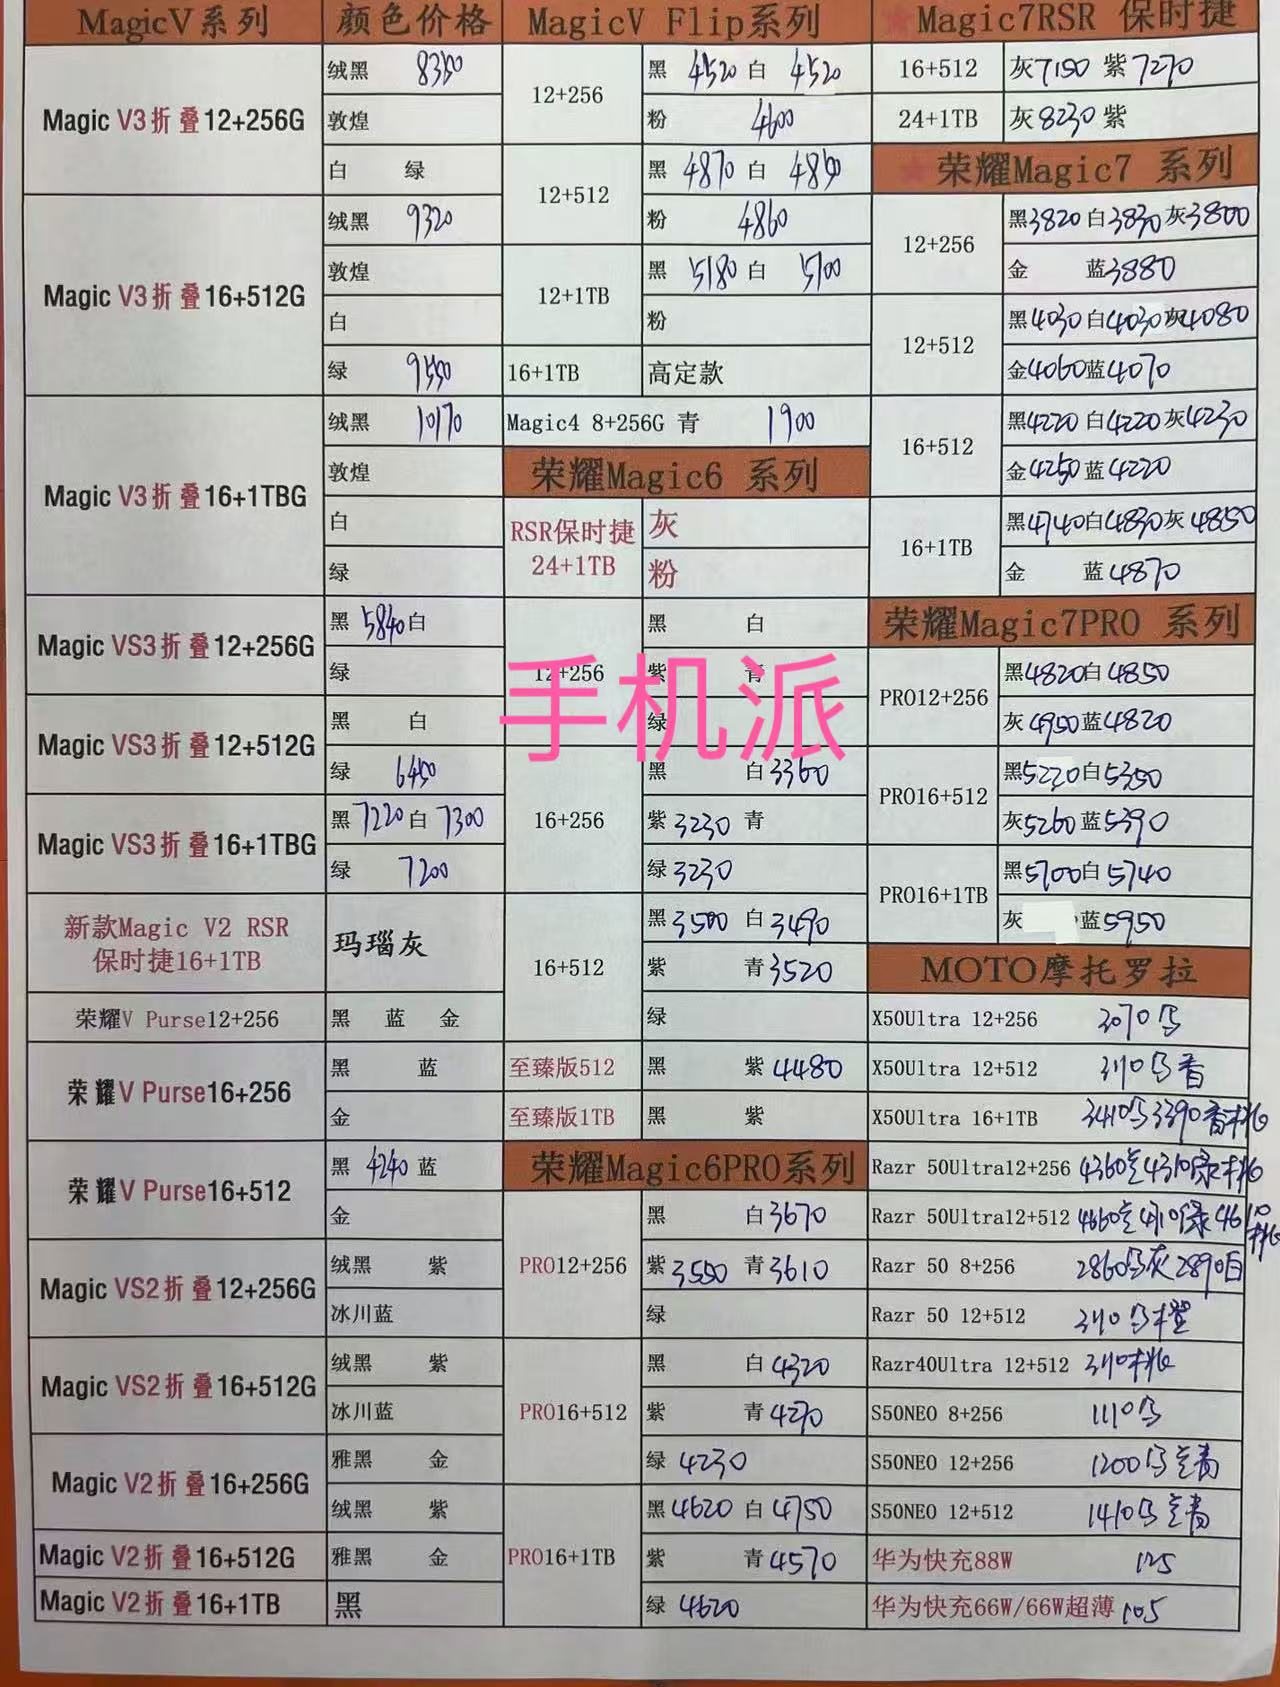 MagicV系列 颜色价格
Magic V3折叠12+256G
绒黑 8350
敦煌
白 绿
Magic V3折叠16+512G
绒黑 9320
敦煌
白
绿 9550
Magic V3折叠16+1TBG
绒黑 10170
敦煌
白
绿
Magic VS3折叠12+256G
黑 5840 白
绿
Magic VS3折叠12+512G
黑 白
绿 6450
Magic VS3折叠16+1TBG
黑 7220 白 7300
绿 7200
新款Magic V2 RSR
保时捷16+1TB
玛瑙灰
荣耀V Purse12+256 黑 蓝 金
荣耀V Purse16+256
黑 蓝
金
荣耀V Purse16+512
黑 4240 蓝
金
Magic VS2折叠12+256G
绒黑 紫
冰川蓝
Magic VS2折叠16+512G
绒黑 紫
冰川蓝
Magic V2折叠16+256G
雅黑 金
绒黑 紫
Magic V2折叠16+512G 雅黑 金
Magic V2折叠16+1TB 黑
MagicV Flip系列
12+256
黑 4520 白 4520
粉 4600
12+512
黑 4870 白
粉 4860
12+1TB
黑 5180 白 5100
粉
16+1TB 高定款
Magic4 8+256G 青 1900
荣耀Magic6 系列
RSR保时捷
24+1TB
灰
粉
12+256
黑 白
紫 青
绿
手机派
16+256
黑 白3360
紫 3230 青
绿 3230
16+512
黑 3500 白 3490
紫 青 3520
绿
至臻版512 黑 紫 4480
至臻版1TB 黑 紫
荣耀Magic6PRO系列
PRO12+256
黑 白3670
紫 3550 青 3610
绿
PRO16+512
黑 白 4320
紫 青 4270
绿 4230
PRO16+1TB
黑 4620 白 4750
紫 青 4570
绿 4620
★Magic7RSR 保时捷
16+512 灰7150 紫7270
24+1TB 灰8230 紫
★荣耀Magic7 系列
12+256
黑3820 白3830 灰3800
金 蓝3880
12+512
黑4030 白4030 灰4080
金4060 蓝4070
16+512
黑4220 白4220 灰4230
金4250 蓝4220
16+1TB
黑4740 白4830 灰4850
金 蓝4870
荣耀Magic7PRO 系列
PRO12+256
黑4820 白4850
灰4950 蓝4820
PRO16+512
黑5220 白5350
灰5260 蓝5390
PRO16+1TB
黑5700 白5740
灰 蓝5950
MOTO摩托罗拉
X50Ultra 12+256 3070乌
X50Ultra 12+512 3110乌杏
X50Ultra 16+1TB 3410乌3390杏桃
Razr 50Ultra12+256 4360兰4310绿桃
Razr 50Ultra12+512 4660兰 绿
桃
Razr 50 8+256 2860乌灰2890白
Razr 50 12+512 乌橙
Razr40Ultra 12+512 桃
S50NEO 8+256 1110乌
S50NEO 12+256 1200乌兰青
S50NEO 12+512 1410乌兰青
华为快充88W 125
华为快充66W/66W超薄 105